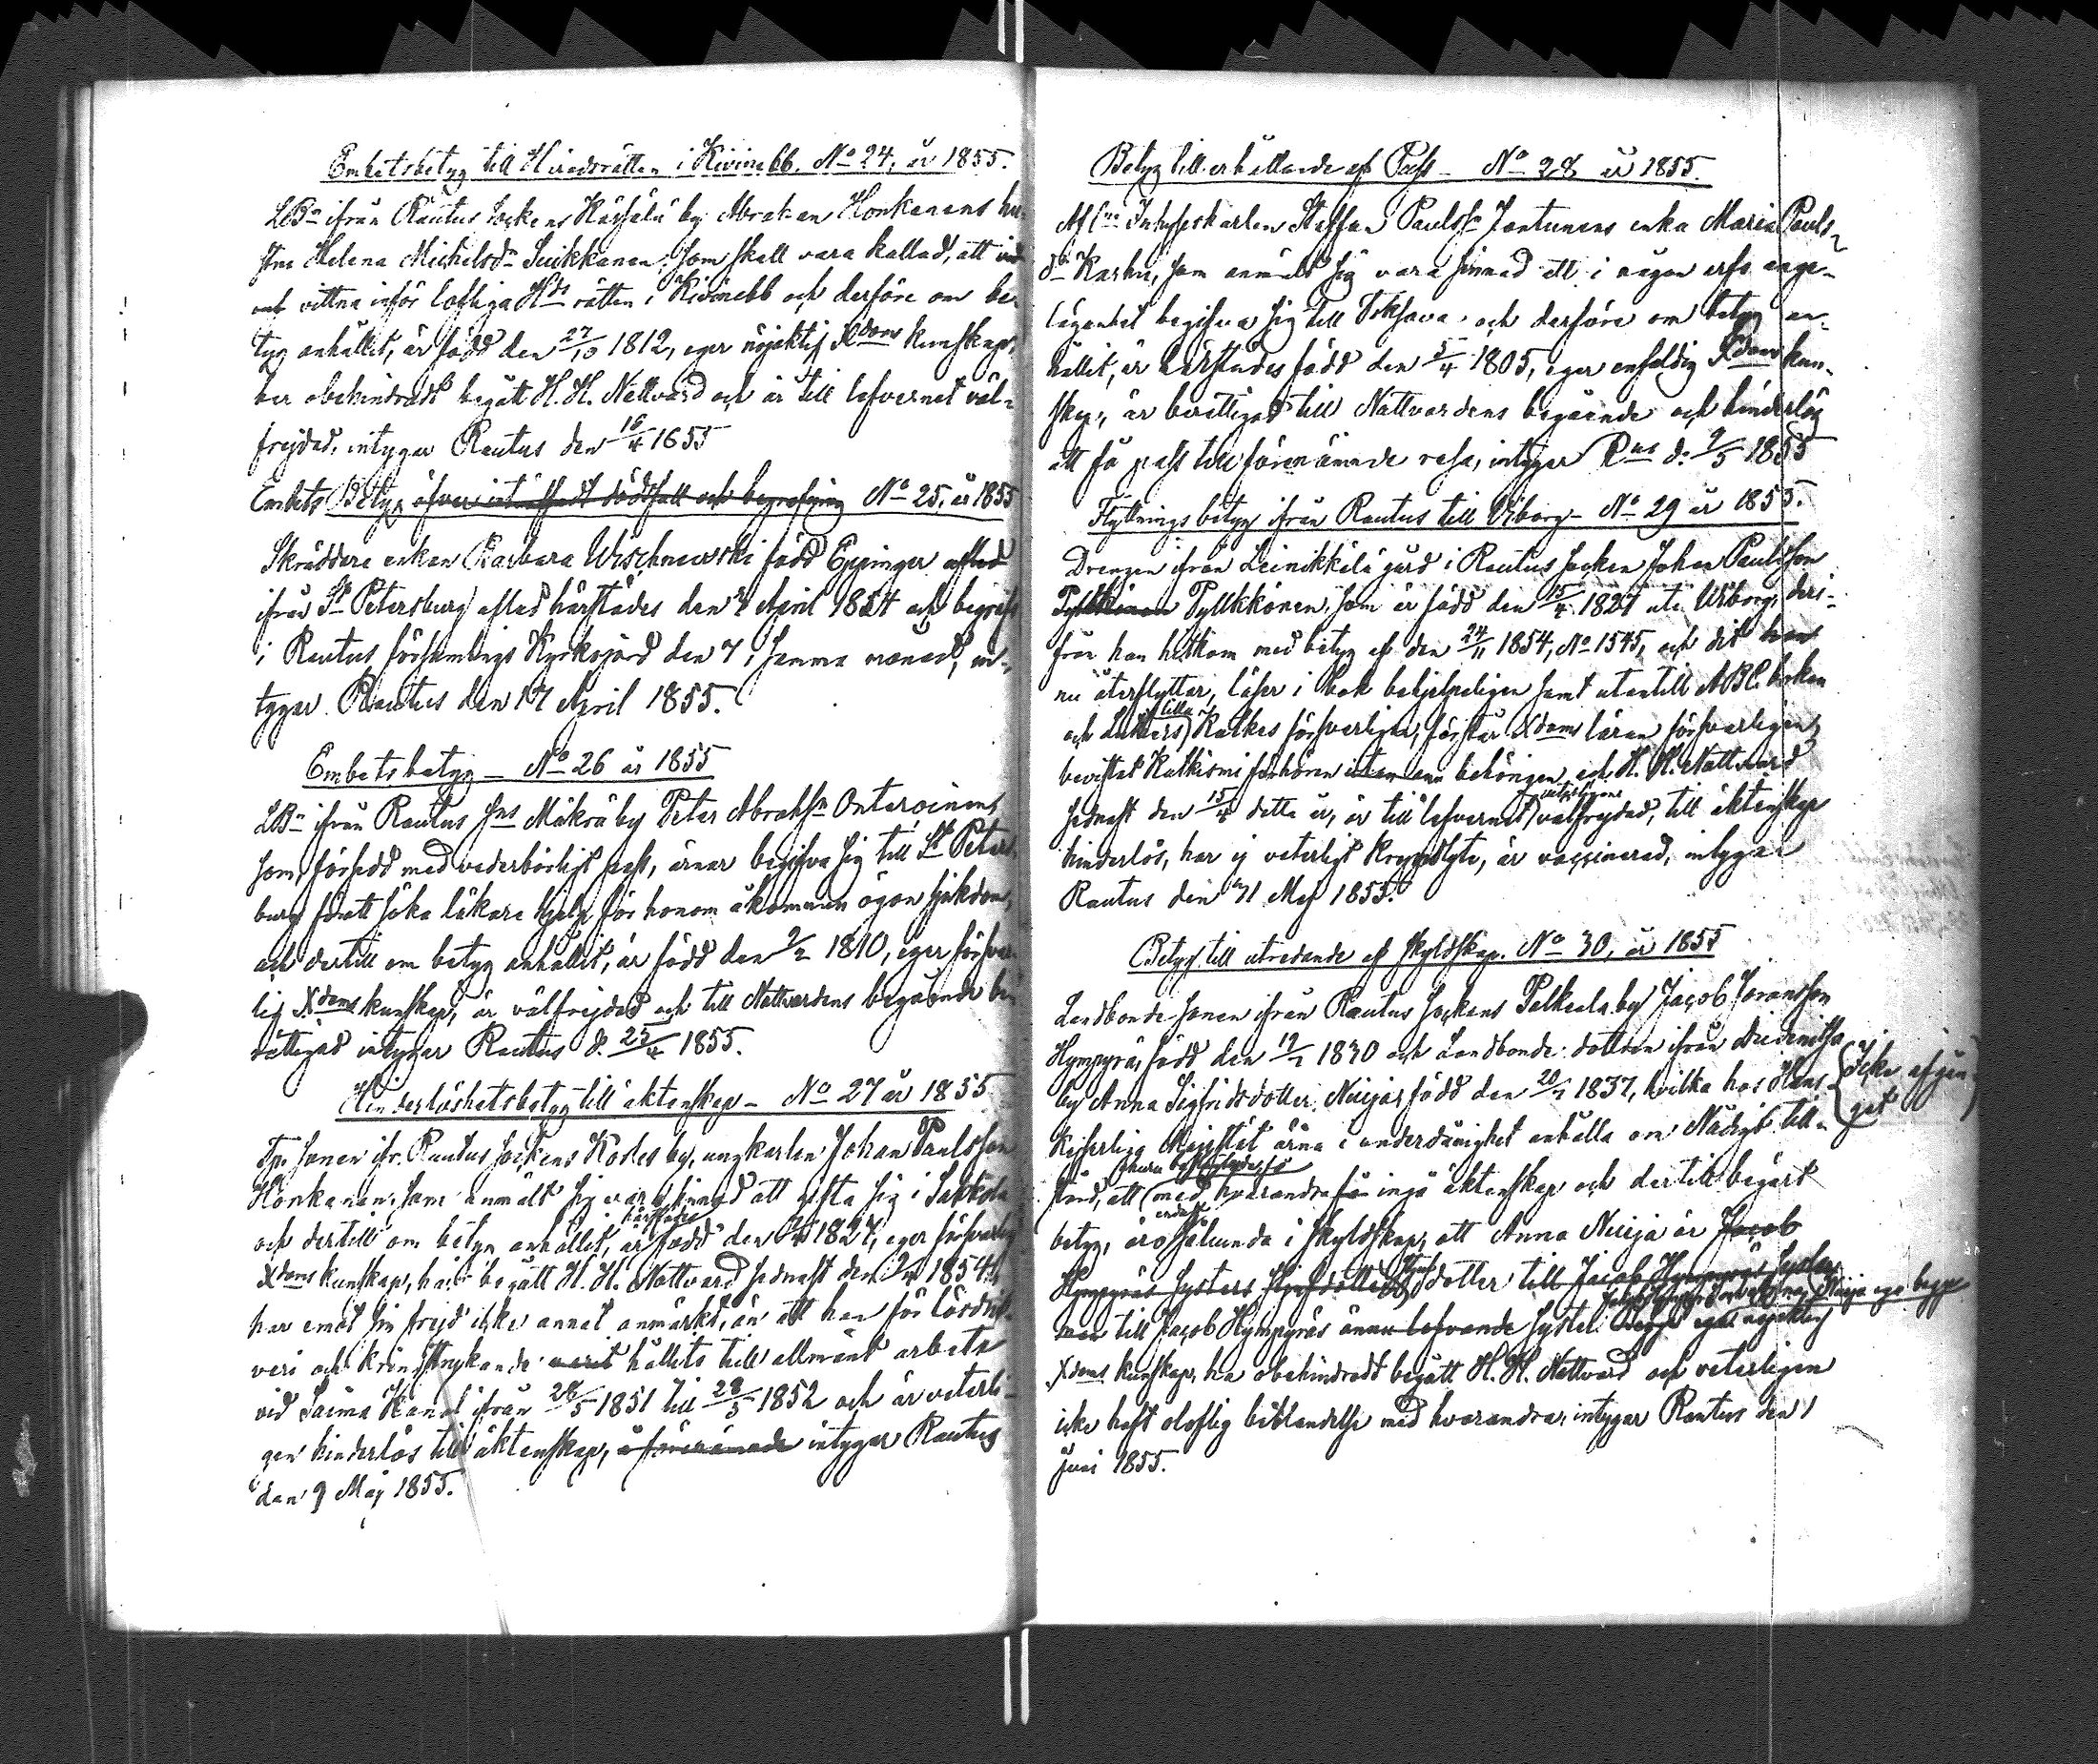 Embetsbetyg till Häradsrätten i Kivinebb. No 24, år 1855.
LBn ifrån Rautus Sockens Härfälä by Abraham Honkanens hu-
stru Helena Michelsdr Suikkanen, som skall vara kallad, att
vittna inför lofliga Hds rätten i Kivinebb och derföre om be-
tyg anhållit, är född den 27/10 1812, eger nöjaktig Xdoms kunskap,
har obehindradt begått H. H. Nattvard och är till lefvernet väl-
frejdad, intygar Rautus den 16/4 1855
Embets Betyg öfver inträffadt dödsfall och begrafning No 25. år 1855
Skräddare enkan Barbara Wischnewski född Eppinger
ifrån St Petersburg afled härstädes den 2 April 1854 och begrofs
i Rautus församlings Kyrkogård den 7 i samma månad, in-
tygar Rautus den 17 April 1855.
Embetsbetyg — No 26 år 1855
LBn ifrån Rautus Sns Mäkrä by Peter Abrahsn Onteroinen,
som, försedd med vederbörligt pass, ärnar begifva sig till St Peters-
burg föratt söka läkare hjelp för honom åkommen ögon sjukdom,
och dertill om betyg anhållit, är född den 9/2 1810, eger försvar-
lig Xdoms kunskap, är välfrejdad och till Nattvardens begående be-
rättigad intygar Rautus d. 25/4 1855.
Hinderlöshetsbetyg till äktenskap — No 27 år 1855
Tp. sonen ifr. Rautus Sockens Kosles by, ungkarlen Johan Paulsson
Honkanen, som anmält sig vara sinnad att gifta sig i Sakkola
och dertill om betyg anhållit, är härstädes född den 1827, eger försvarlig
Xdoms kunskap, har begått H. H. Nattvard sednast den 2/4 1854,
har emot sin frejd icke annat anmärkt, än att han för lösdrif-
veri och kringstrykande varit hållits till allmänt arbete
vid Saima Kanal ifrån 28/5 1851 till 28/5 1852 och är veterli-
gen hinderlös till äktenskap, intygar Rautus
den 9 Maj 1855.
Betyg till erhållande af Pass — No 28 år 1855.
Afl. Inhyseskarlen Staffan Paulssn Jantunens enka Maria Pauls-
dr Karhu, som anmält sig vara sinnad att i någon arfs ange-
lägenhet begifva sig till Toksova och derföre om betyg an-
hållit, är härstädes född den 5/4 1805, eger enfaldig Xdoms kun-
skap, är berättigad till Nattvardens begående och hinderlös
att få pass till förenämnde resa, intygar Rus d. 2/5 1855
Flyttnings betyg ifrån Rautus till Viborg — No 29 år 1855.
Drengen ifrån Leinikkälä gård i Rautus Socken Johan Paulsson
Pyllkkönen, som är född den 15/4 1827 uti Wiborg, deri-
från han hitkom med betyg af den 24/11 1854, No 1545, och dit han
nu återflyttar, läser i bok behjelpeligen samt utantill ABC boken
och Luthers lilla Katkes försvarligen, förstår Xdoms läran försvarligen,
bevistat Katkismi förhören behörigen och H. H. Nattvard
sednast den 15/4 detta år, är till lefvernet veterligen välfrejdad, till äktenskap
hinderlös, har ej veterligt kroppslyte, är vaccinerad, intygar
Rautus den 31 Maj 1855.
Betyg till utredande af skyldskap. No 30, år 1855
Landbonde sonen ifrån Rautus Sockens Palkeala by Jacob Göransson
Hympyrä, född den 19/2 1830 och Landbonde dottren ifrån
by Anna Sigfridsdotter Nuija, född den 20/2 1837, hvilka hos Hans (Icke afgån-
Kejserliga Majestät ärna i underdånighet anhålla om Nådigt till- get)
stånd, att med hvarandra få ingå äktenskap och dertill begärt
betyg, äro sålunda i skyldskap, att Anna Nuija är Jacob
Hympyräs systers dotter till Jacob Hympyräs syster
till Jacob Hympyräs ännu lefvande syster. Nuija ega begge
Xdoms kunskap, ha obehindradt begått H. H. Nattvard och veterligen
icke haft oloflig beblandelse med hvarandra, intygar Rautus den 1
Juni 1855.